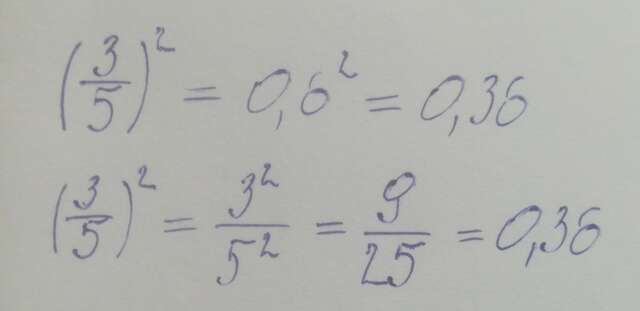 (3/5)² = 0,6² = 0,36
(3/5)² = 3²/5² = 9/25 = 0,36